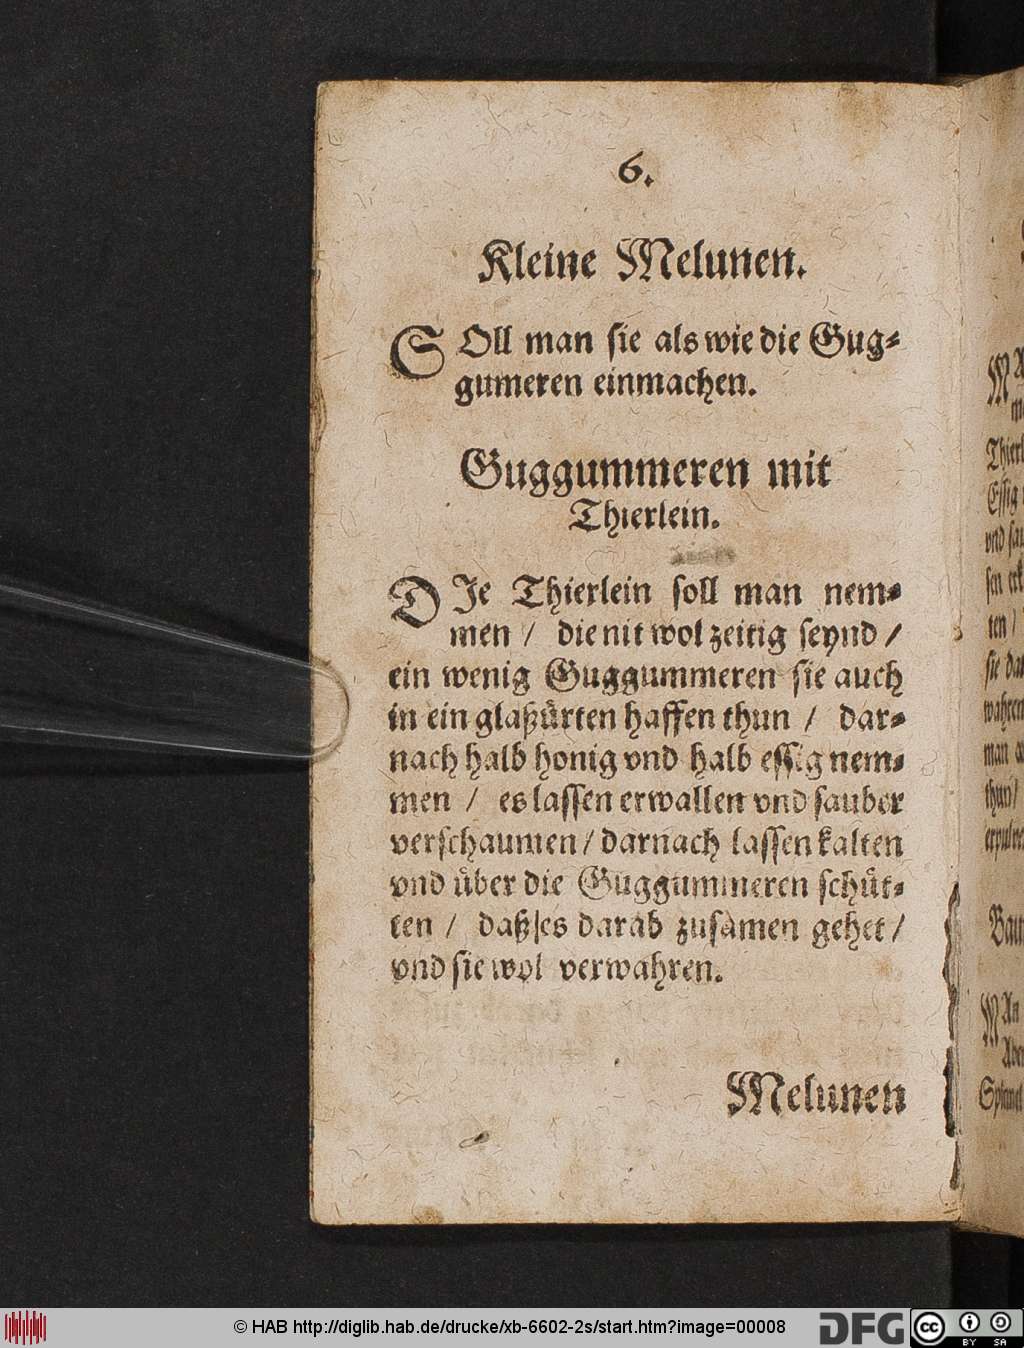 6.
Kleine Melunen.
SOll man sie als wie die Gug-
gumeren einmachen.
Guggummeren mit
Thierlein.
DJe Thierlein soll man nem-
men / die nit wol zeitig seynd /
ein wenig Guggummeren sie auch
in ein glaßürten haffen thun / dar-
nach halb honig vnd halb essig nem-
men / es lassen erwallen vnd sauber
verschaumen / darnach lassen kalten
vnd über die Guggummeren schüt-
ten / daß es darab zusamen gehet /
vnd sie wol verwahren.
Melunen
MA
Thierl
Essig
vnd sau
sen erk
ten /
sie dar
wahren
man
thun /
Bau
MAn
Aber
© HAB http://diglib.hab.de/drucke/xb-6602-2s/start.htm?image=00008
DFG
cc
BY SA